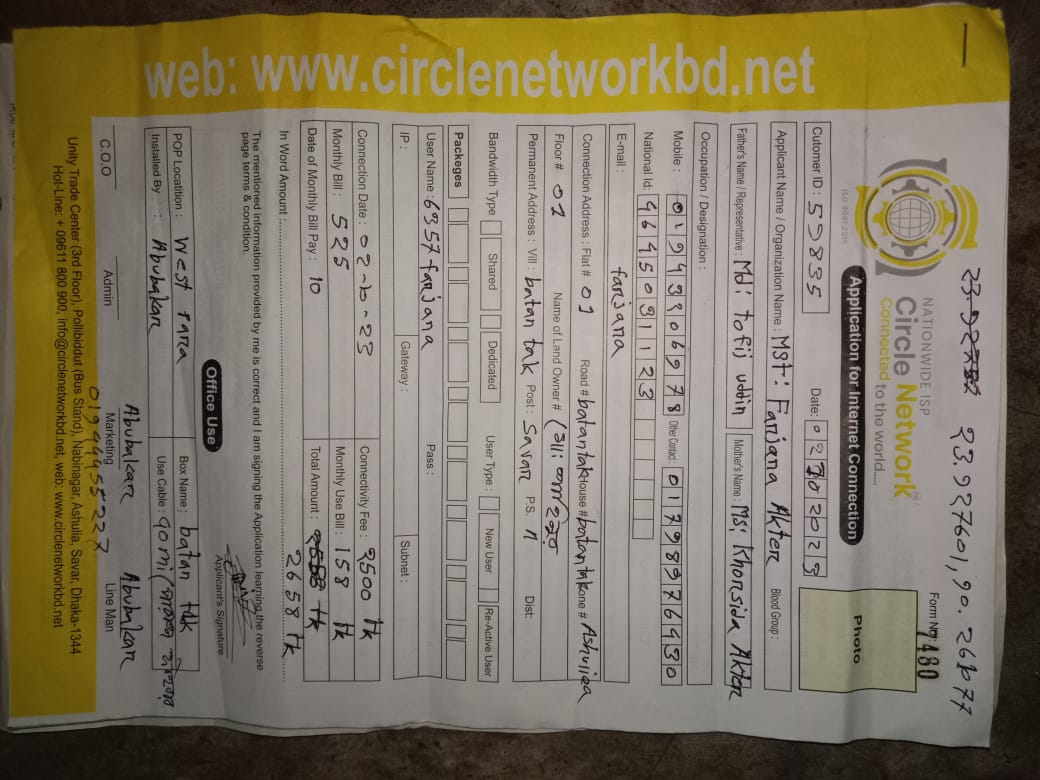 23.927601,90.268077
Form No: 7480
NATIONWIDE ISP
Circle Network
Connected to the world....
ISO 9001:2015
Application for Internet Connection
Photo
Cutomer ID : 59835
Date:
Applicant Name / Organization Name : MSt: Farjana Akter
Blood Group :
Father's Name / Representative : Md: tofij uddin
Mother's Name : MSt Khorsida Akter
Occupation / Designation :
Mobile : 01943806978
Other Contact : 01798976450
National Id: 4645091123
E-mail : farjana
Connection Address : Flat # 01 Road # batantak House # batantak Zone # Ashuliea
Floor # 01 Name of Land Owner #
Permanent Address : Vill : batan tak Post : Savar P.S. 11 Dist:
Bandwidth Type Shared Dedicated User Type : New User Re-Active User
Packeges
User Name : 6357farjana Pass :
IP : Gateway : Subnet :
Connection Date : Connectivity Fee : 2500 tk
Monthly Bill : 525 Monthly Use Bill : 158 tk
Date of Monthly Bill Pay : 10 Total Amount : tk
2658 tk
In Word Amount :
The mentioned information provided by me is correct and I am signing the Application learning the reverse
page terms & condition.
Applicant's Signature
Office Use
POP Locatition : West Para Box Name : batan tak
Installed By : Abubakar Use Cable : 90 mi
Abubakar Abubakar
C.O.O Admin Marketing Line Man
01944955227
Unity Trade Center (3rd Floor), Pollibiddut (Bus Stand), Nabinagar, Ashulia, Savar, Dhaka-1344
Hot-Line: + 09611 800 900, info@circlenetworkbd.net, web: www.circlenetworkbd.net
web: www.circlenetworkbd.net